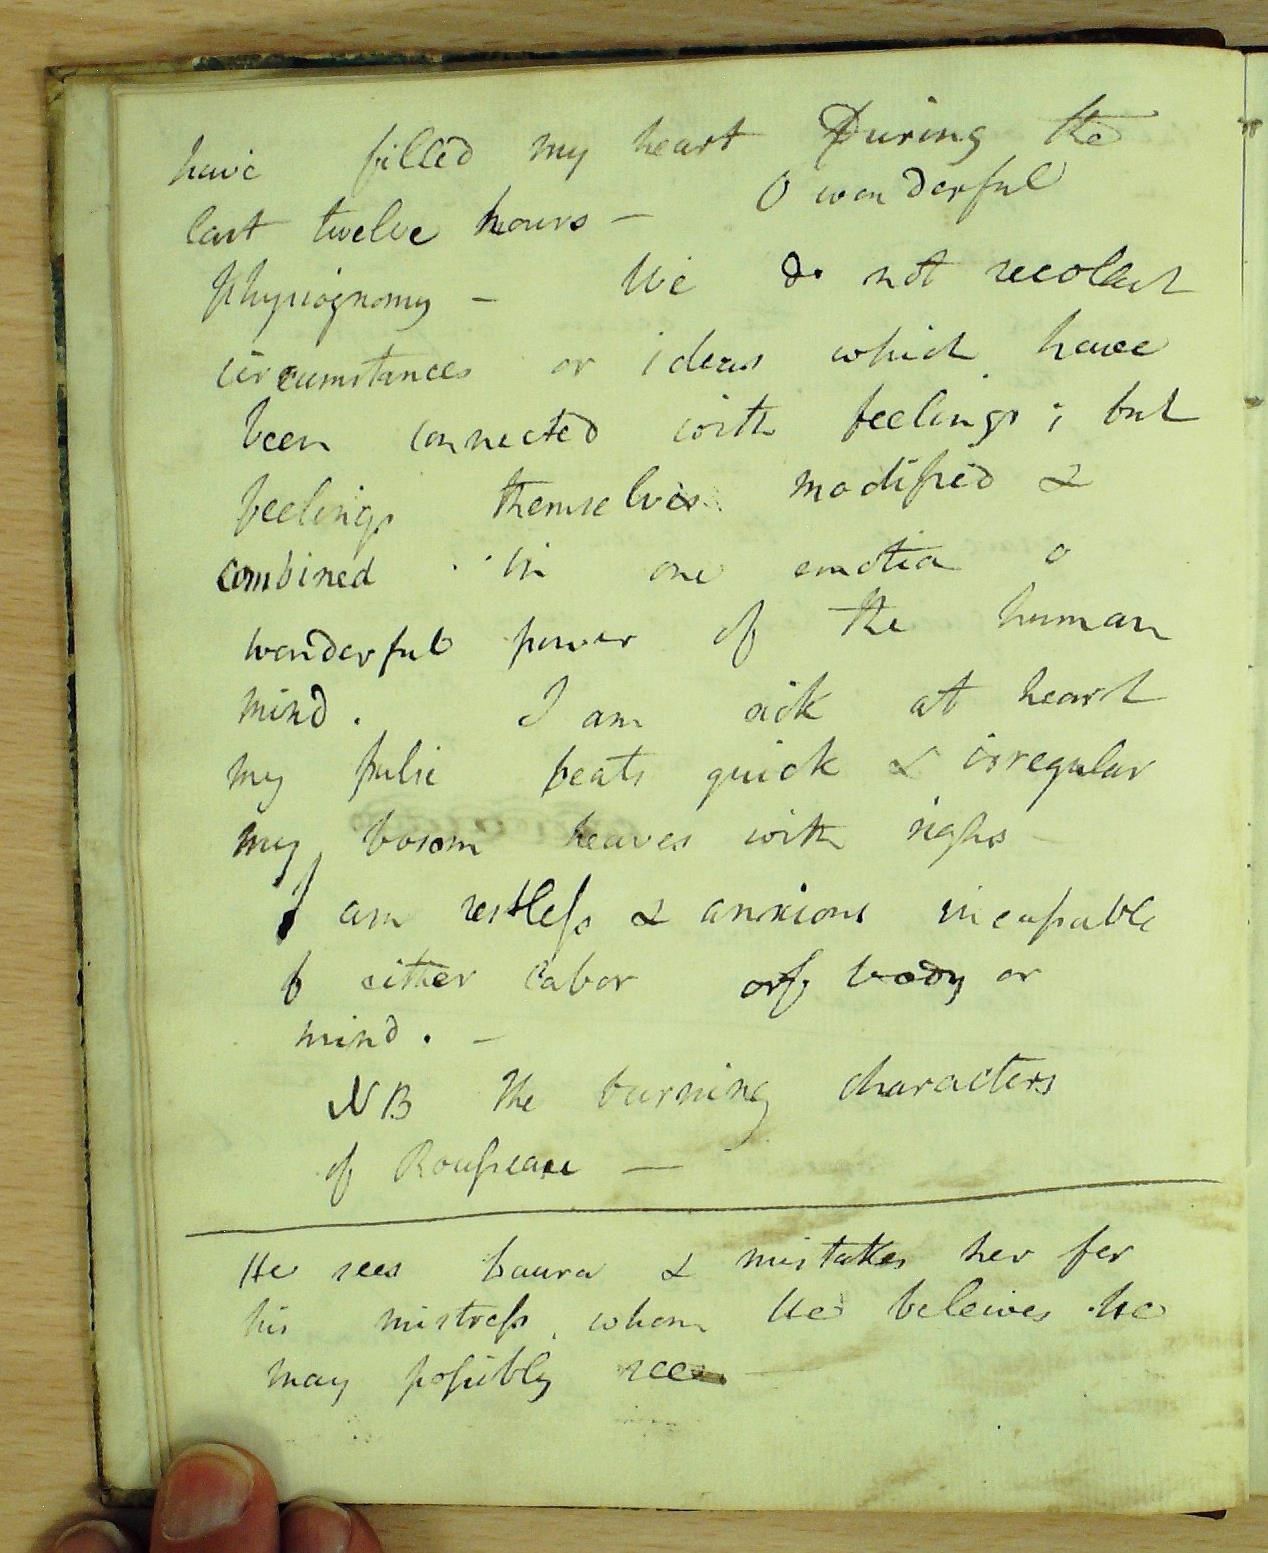 have filled my heart During the
last twelve hours – O wonderful
Physiognomy – We do not recolect
circumstances or ideas which have
been connected with feelings; but
feelings themselves modified &
combined in one emotion o
wonderful power of the human
mind. I am sick at heart
my pulse beats quick & irregular
my bosom heaves with sighs –
I am restless & anxious incapable
of either labor of body or
mind. –
NB The burning characters
of Rousseau —
He sees Laura & mistakes her for
his mistress, whom He beleives he
may possibly see —